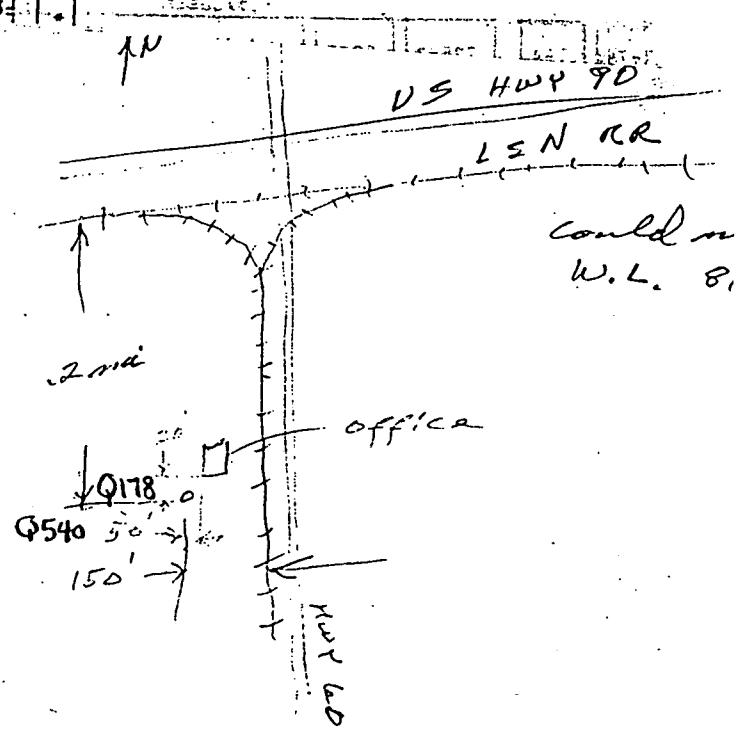 N
US HWY 90
L & N RR
could
W.L. 8.
.2 mi
office
Q178
Q540 50'
150'
HWY 60